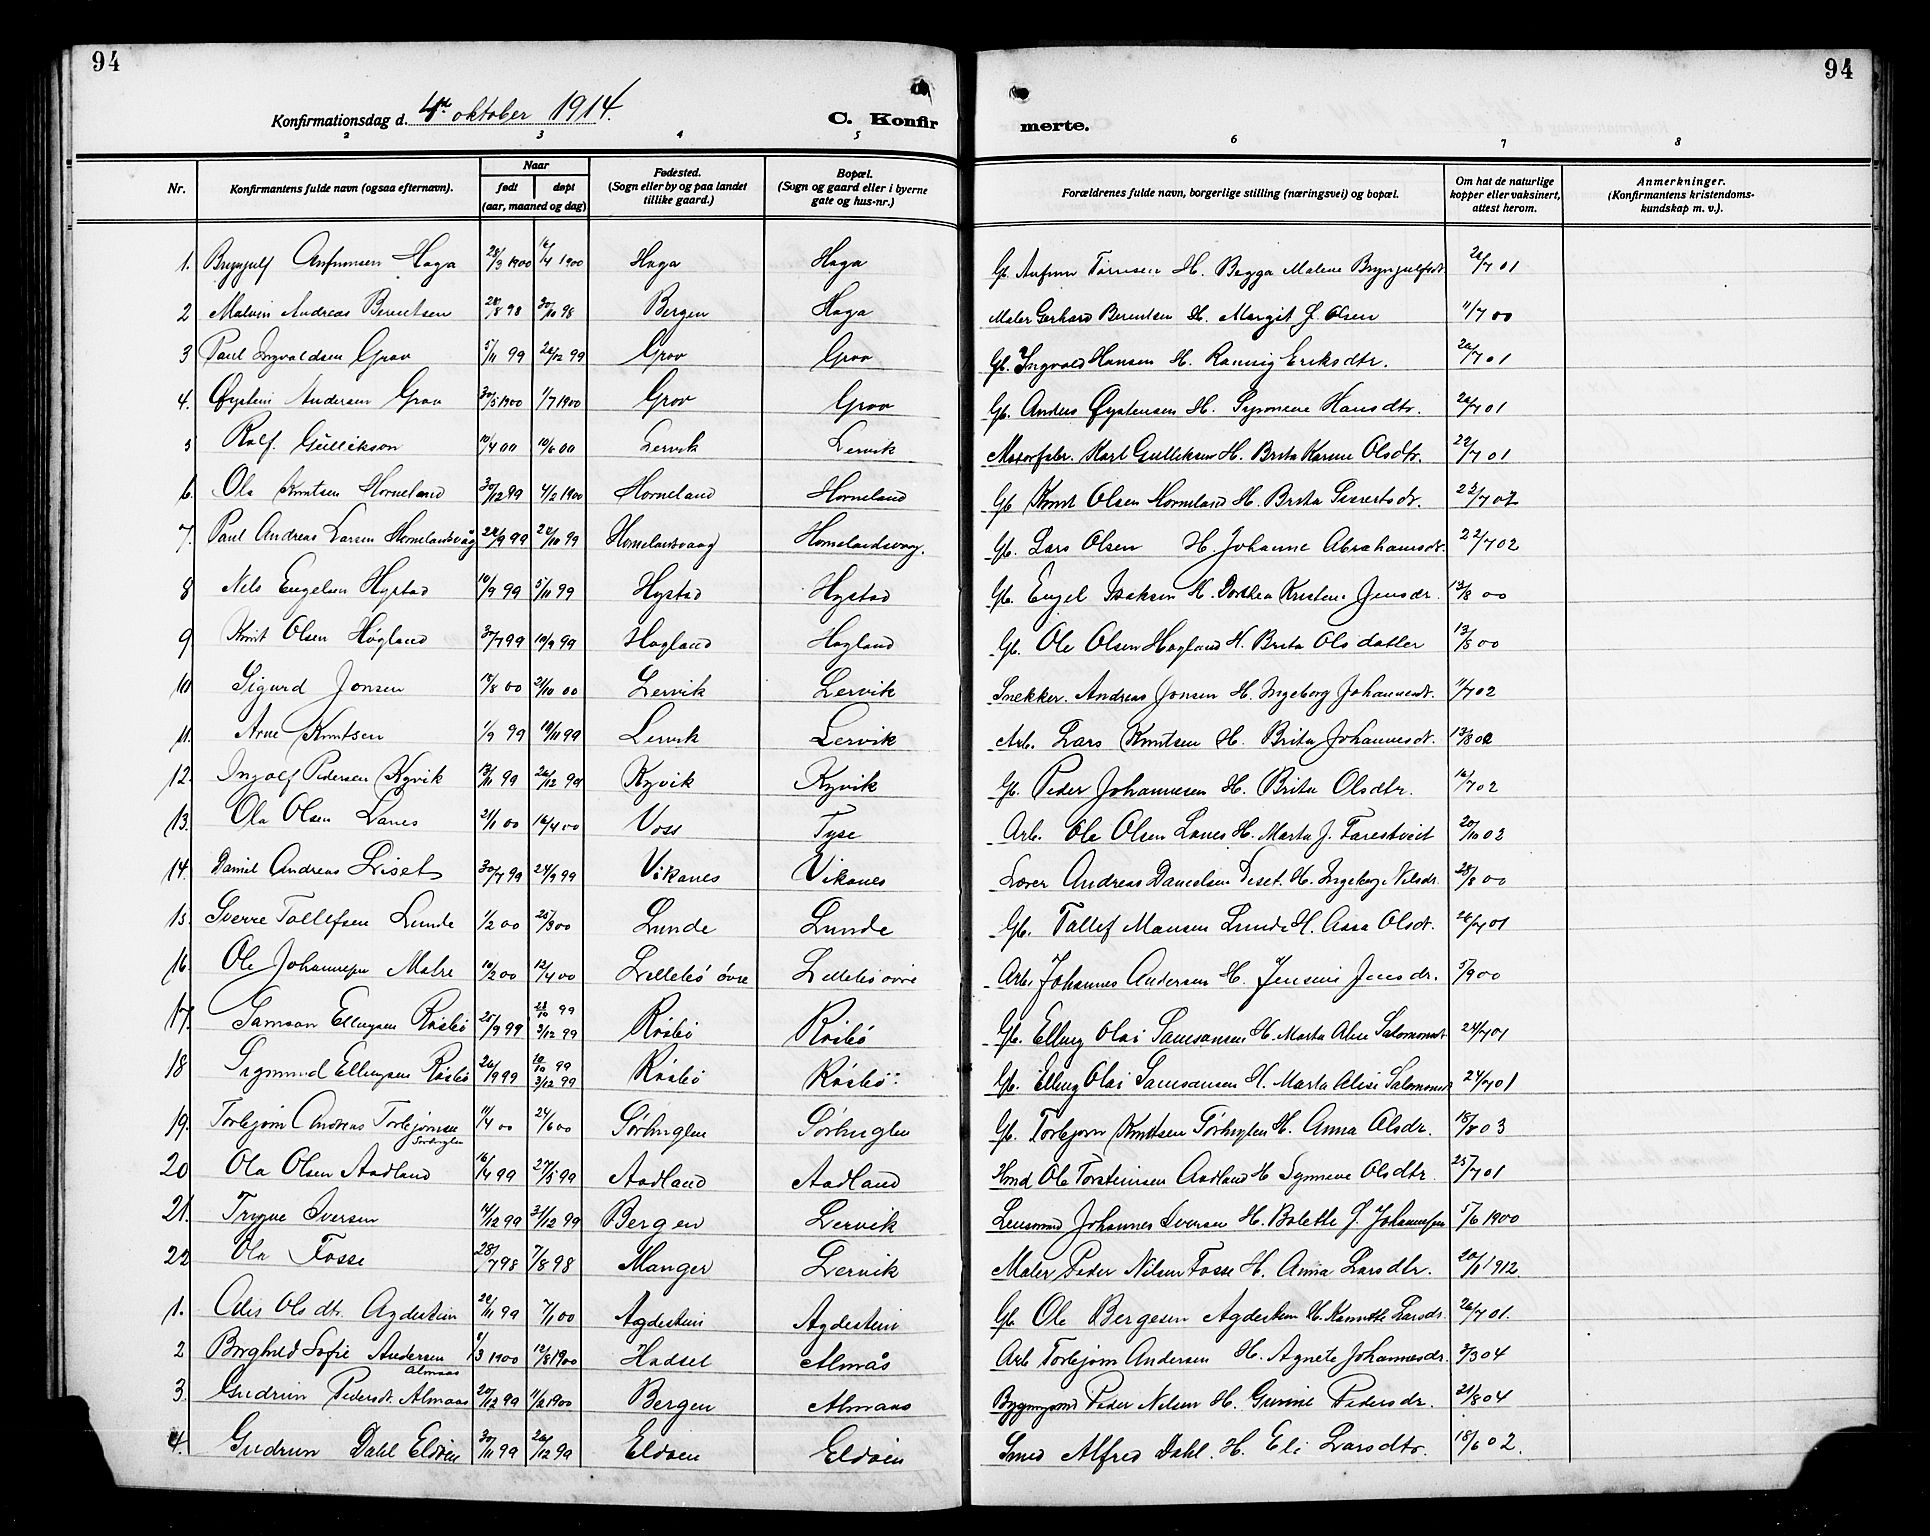 94
94
Konfirmationsdag d. 4de oktober 1914.
C. Konfir
merte.
2 3 4 5 6 7 8
Nr. Konfirmantens fulde navn (ogsaa efternavn). Naar født døpt (aar, maaned og dag) Fødested. (Sogn eller by og paa landet tillike gaard.) Bopæl. (Sogn og gaard eller i byerne gate og hus-nr.) Forældrenes fulde navn, borgerlige stilling (næringsvei) og bopæl. Om hat de naturlige kopper eller vaksinert, attest herom. Anmerkninger. (Konfirmantens kristendoms-kundskap m. v.).
1. Brynjulf Anfinnsen Haga 28/3 1900 16/4 1900 Haga Haga Gb. Anfinn Tørrisen H. Begga Malene Brynjulfsdt. 26/7 01
2 Malvin Andreas Berentsen 28/8 98 30/10 98 Bergen Haga Maler Gerhard Berentsen H. Margit J. Olsen 11/7 00
3 Paul Ingvaldsen Grov 5/11 99 26/12 99 Grov Grov Gb. Ingvald Hansen H. Rannig Eriksdtr. 26/7 01
4. Øystein Andersen Grov 30/5 1900 1/7 1900 Grov Grov Gb. Anders Øystensen H. Synneve Hansdtr. 26/7 01
5 Rolf Gullikson 10/4 00 10/6 00 Lervik Lervik Motorfabr. Karl Gulliksen H. Brita Karine Olsdtr. 22/7 01
6. Ola Knutsen Horneland 30/12 99 4/2 1900 Horneland Horneland Gb. Knut Olsen Horneland H. Brita Sivertsdr. 23/7 02
7. Paul Andreas Larsen Hornelandsvåg 24/9 99 22/10 99 Hornelandsvaag Hornelandsvaag. Gb. Lars Olsen H. Johanne Abrahamsdr. 22/7 02
8 Nels Engelsen Hystad 10/9 99 5/11 99 Hystad Hystad Gb. Engel Isaksen H. Dorthea Kristine Jensdr. 13/8 00
9 Knut Olsen Høgland 30/7 99 10/9 99 Hogland Hogland Gb. Ole Olsen Hogland H. Brita Olsdatter 13/8 00
10 Sigurd Jonsen 12/8 00 21/10 00 Lervik Lervik Snekker. Andreas Jonsen H. Ingeborg Johannesdt. 11/7 02
11. Arne Knutsen 1/9 99 19/11 99 Lervik Lervik Arb. Lars Knutsen H. Brita Johannesdt. 13/8 02
12. Ingolf Pedersen Kyvik 13/11 99 26/12 99 Kyvik Kyvik Gb. Peder Johannesen H. Brita Olsdtr. 16/7 02
13. Ola Olsen Lanes 21/1 00 16/4 00 Voss Tyse Arb. Ole Olsen Lanes H. Marta J. Farestveit 20/10 03
14. Daniel Andreas Liset 30/7 99 24/9 99 Vikanes Vikanes Lærer Andreas Danielsen Liset. H. Ingeborg Nilsdr. 28/8 00
15. Sverre Tollefsen Lunde 1/2 00 25/3 00 Lunde Lunde Gb. Tollef Monsen Lunde H. Aasa Olsdt. 26/7 01
16 Ole Johannesen Malre 10/2 00 12/4 00 Lillebø øvre Lillebø øvre Arb. Johannes Andersen H. Jensine Jensdr. 5/9 00
17. Samson Ellingsen Røsbø 25/9 99 3/12 99 Røsbø Røsbø Gb. Elling Olai Samsonsen H. Marta Alise Salomonsdt. 24/7 01
18 Sigmund Ellingsen Røsbø 3/12 99 Røsbø Røsbø. Gb. Elling Olai Samsonsen H. Marta Alise Salomonsdt. 24/7 01
19. Torbjørn Andreas Torbjørnsen Sørhuglen 11/4 00 24/6 00 Sørhuglen Sørhuglen Gb. Torbjørn Knutsen Sørhuglen H. Anna Olsdr. 18/8 03
20 Ola Olsen Aadland 16/4 99 27/5 99 Aadland Aadland Hmd. Ole Torsteinsen Aadland H Synneve Olsdtr. 25/7 01
21. Trygve Iversen 14/12 99 31/12 99 Bergen Lervik Lensmand Johannes Iversen H. Bolette J. Johannesen 5/6 1900
22 Ola Fosse 28/7 98 7/8 98 Manger Lervik Maler Peder Nilsen Fosse H. Anna Larsdtr. 20/1 1912
1. Olsdtr. Agdestein 22/11 99 7/1 00 Agdestein Agdestein Gb. Ole Bergesen Agdestein H. Larsdr. 26/7 01.
2 Borghild Sofie Andersen Almaas 1/3 1900 12/8 1900 Hadsel Almås Arb. Torbjørn Andersen H. Agnete Johannesdr. 3/3 04
3. Gudrun Pedersdt. Almaas 20/12 99 11/2 1900 Bergen Almaas Bygmand Peder Nilsen H. Gurine Pedersdr. 21/8 04
4. Gudrun Dahl Eldøen 30/11 99 26/12 99 Eldøen Eldøen Smed Alfred Dahl. H. Eli Larsdtr. 18/6 02.